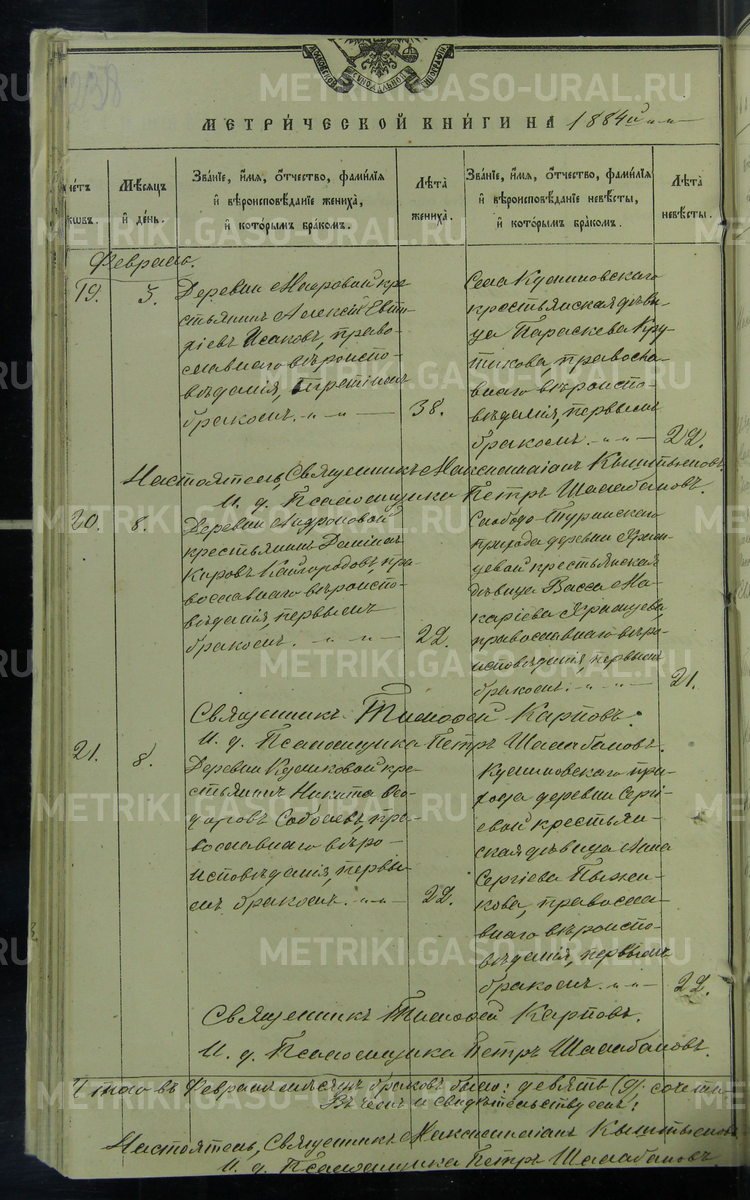 238
МОСКОВСКОЙ СѴНОДАЛЬНОЙ ТИПОГРАФІИ
МЕТРИ́ЧЕСКОЙ КНИ́ГИ НА 1884й
Мѣсяцъ и день.
Званіе, имя, отчество, фамилія и вѣроисповѣданіе жениха, и которымъ бракомъ.
Лѣта жениха.
Званіе, имя, отчество, фамилія и вѣроисповѣданіе невѣсты, и которымъ бракомъ.
Лѣта невѣсты.
Февраль.
19.
5.
Деревни кре-
стьянинъ Алексій Евти-
хіевъ Исаковъ, право-
славнаго вѣроиспо-
вѣданія, третіимъ
бракомъ.
38.
Села Куминовскаго
крестьянская дѣви-
ца Параскева Кру-
тикова, правосла-
внаго вѣроиспо-
вѣданія, первымъ
бракомъ.
22.
Настоятель, Священникъ Максимиліанъ
И. д. Псаломщика Петръ Шалабановъ.
20.
8.
Деревни
крестьянинъ
Кировъ Кайгородовъ, пра-
вославнаго вѣроиспо-
вѣданія, первымъ
бракомъ.
22.
Слободо-Туринскаго
прихода деревни Ярин-
цевой крестьянская
дѣвица Васса Ма-
каріева
православнаго вѣро-
исповѣданія, первымъ
бракомъ.
21.
Священникъ Тимофей Карповъ.
И. д. Псаломщика Петръ Шалабановъ.
21.
8.
Деревни Куликовой кре-
стьянинъ Никита Ѳео-
доровъ Соболевъ, пра-
вославнаго вѣро-
исповѣданія, первы-
мъ бракомъ.
22.
Куминовскаго при-
хода деревни Сергі-
евой крестьян-
ская дѣвица Анна
Сергіева Пыжи-
кова, правосла-
внаго вѣроиспо-
вѣданія, первымъ
бракомъ.
22.
Священникъ Тимофей Карповъ.
И. д. Псаломщика Петръ Шалабановъ.
Итого въ Февралѣ мѣсяцѣ браковъ было: девять (9) сочета
Въ чемъ и свидѣтельствуемъ:
Настоятель, Священникъ Максимиліанъ
И. д. Псаломщика Петръ Шалабановъ.
METRIKI.GASO-URAL.RU